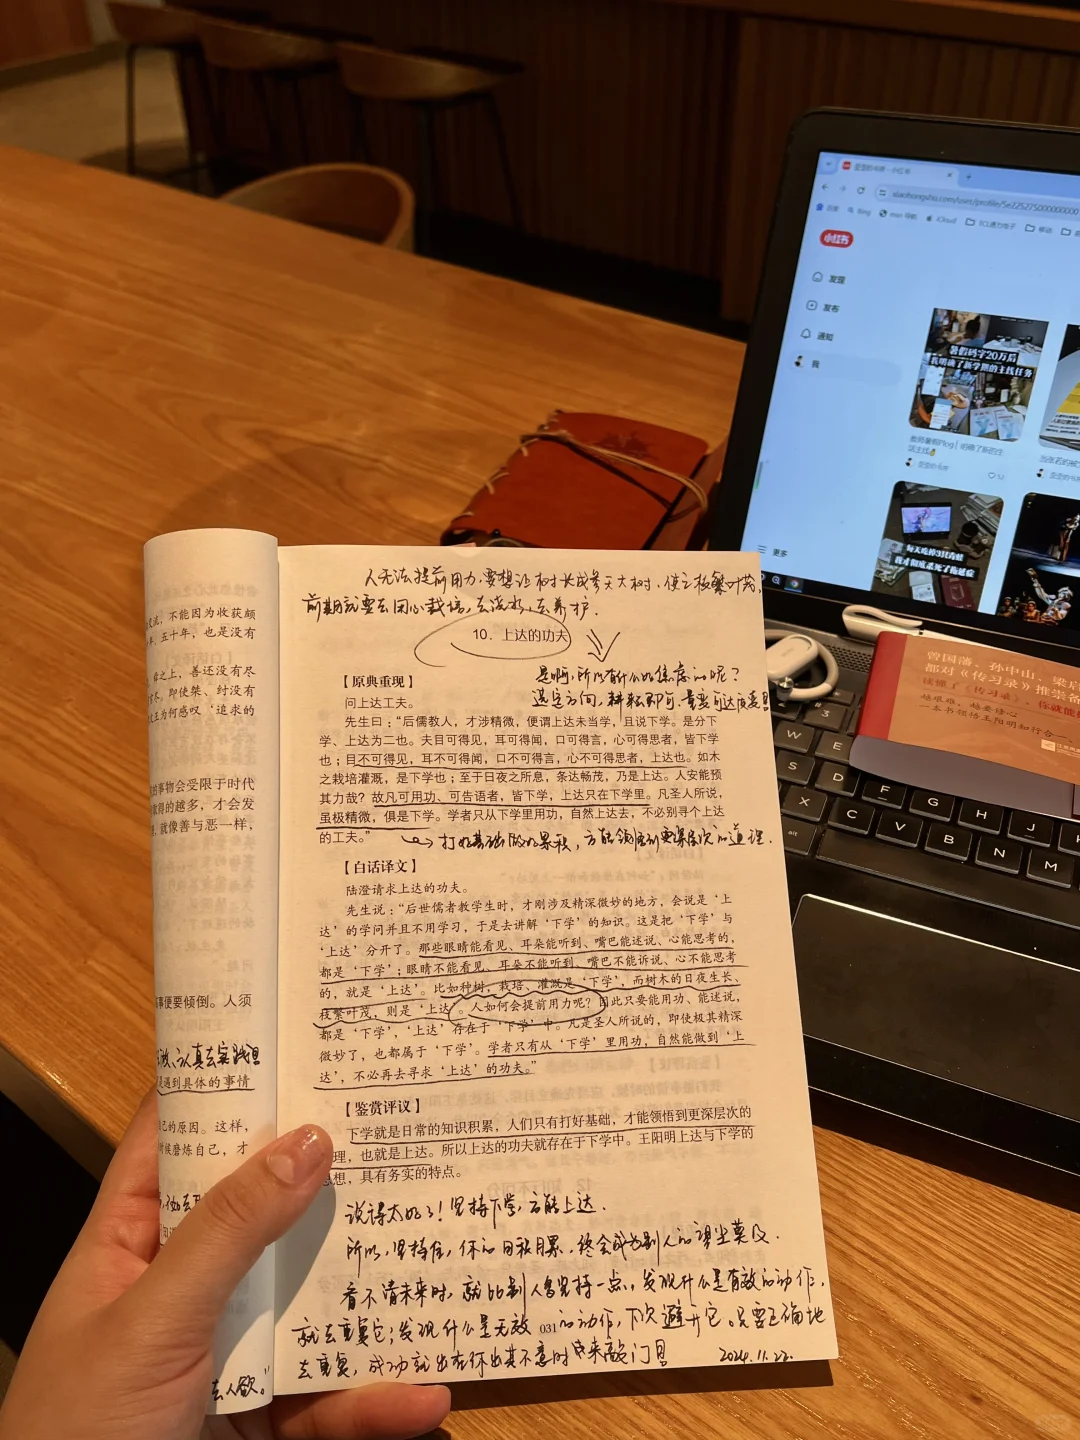 小红书
发现
发布
通知
我
更多
暑假码字20万后
我明确了新学期的主线任务
每天吃掉3只青蛙
我才彻底杀死了拖延症
曾国藩、孙中山、梁启
都对《传习录》推崇备
读懂了《传习录》，你就能
越艰难，越要修心
一本书领悟王阳明知行合一、
不能因为收获颇
五十年，也是没有
之上，善还没有尽
即使桀、纣没有
王为何感叹‘追求的
的事物会受限于时代
取得的越多，才会发
就像善与恶一样，
事便要倾倒。人须
认真去实践
遇到具体的事情
己的原因。这样，
时候磨炼自己，才
去人欲。”
人无法提前用力，要想让树长成参天大树，使之枝繁叶茂，
前期就要去用心栽培，去浇水，去养护。
10. 上达的功夫
是啊，所以有什么好焦虑的呢？
选定方向，耕耘即可，量变可达质变
【原典重现】
问上达工夫。
先生曰：“后儒教人，才涉精微，便谓上达未当学，且说下学。是分下
学、上达为二也。夫目可得见，耳可得闻，口可得言，心可得思者，皆下学
也；目不可得见，耳不可得闻，口不可得言，心不可得思者，上达也。如木
之栽培灌溉，是下学也；至于日夜之所息，条达畅茂，乃是上达。人安能预
其力哉？故凡可用功、可告语者，皆下学，上达只在下学里。凡圣人所说，
虽极精微，俱是下学。学者只从下学里用功，自然上达去，不必别寻个上达
的工夫。”
打好基础做好累积，方能领悟到更深层次的道理．
【白话译文】
陆澄请求上达的功夫。
先生说：“后世儒者教学生时，才刚涉及精深微妙的地方，会说是‘上
达’的学问并且不用学习，于是去讲解‘下学’的知识。这是把‘下学’与
‘上达’分开了。那些眼睛能看见、耳朵能听到、嘴巴能述说、心能思考的，
都是‘下学’；眼睛不能看见、耳朵不能听到、嘴巴不能诉说、心不能思考
的，就是‘上达’。比如种树，栽培、灌溉是‘下学’，而树木的日夜生长、
枝繁叶茂，则是‘上达’。人如何会提前用力呢？因此只要能用功、能述说，
都是‘下学’，‘上达’存在于‘下学’中。凡是圣人所说的，即使极其精深
微妙了，也都属于‘下学’。学者只有从‘下学’里用功，自然能做到‘上
达’，不必再去寻求‘上达’的功夫。”
【鉴赏评议】
下学就是日常的知识积累，人们只有打好基础，才能领悟到更深层次的
理，也就是上达。所以上达的功夫就存在于下学中。王阳明上达与下学的
思想，具有务实的特点。
说得太好了！坚持下学，方能上达．
所以，坚持住，你的日积月累，终会成为别人的望尘莫及．
看不清未来时，就比别人多坚持一点，发现什么是有效的动作，
就去重复它；发现什么是无效的动作，下次避开它。只要正确地
031
去重复，成功就会在你出其不意时中来敲门
2024.11.22.